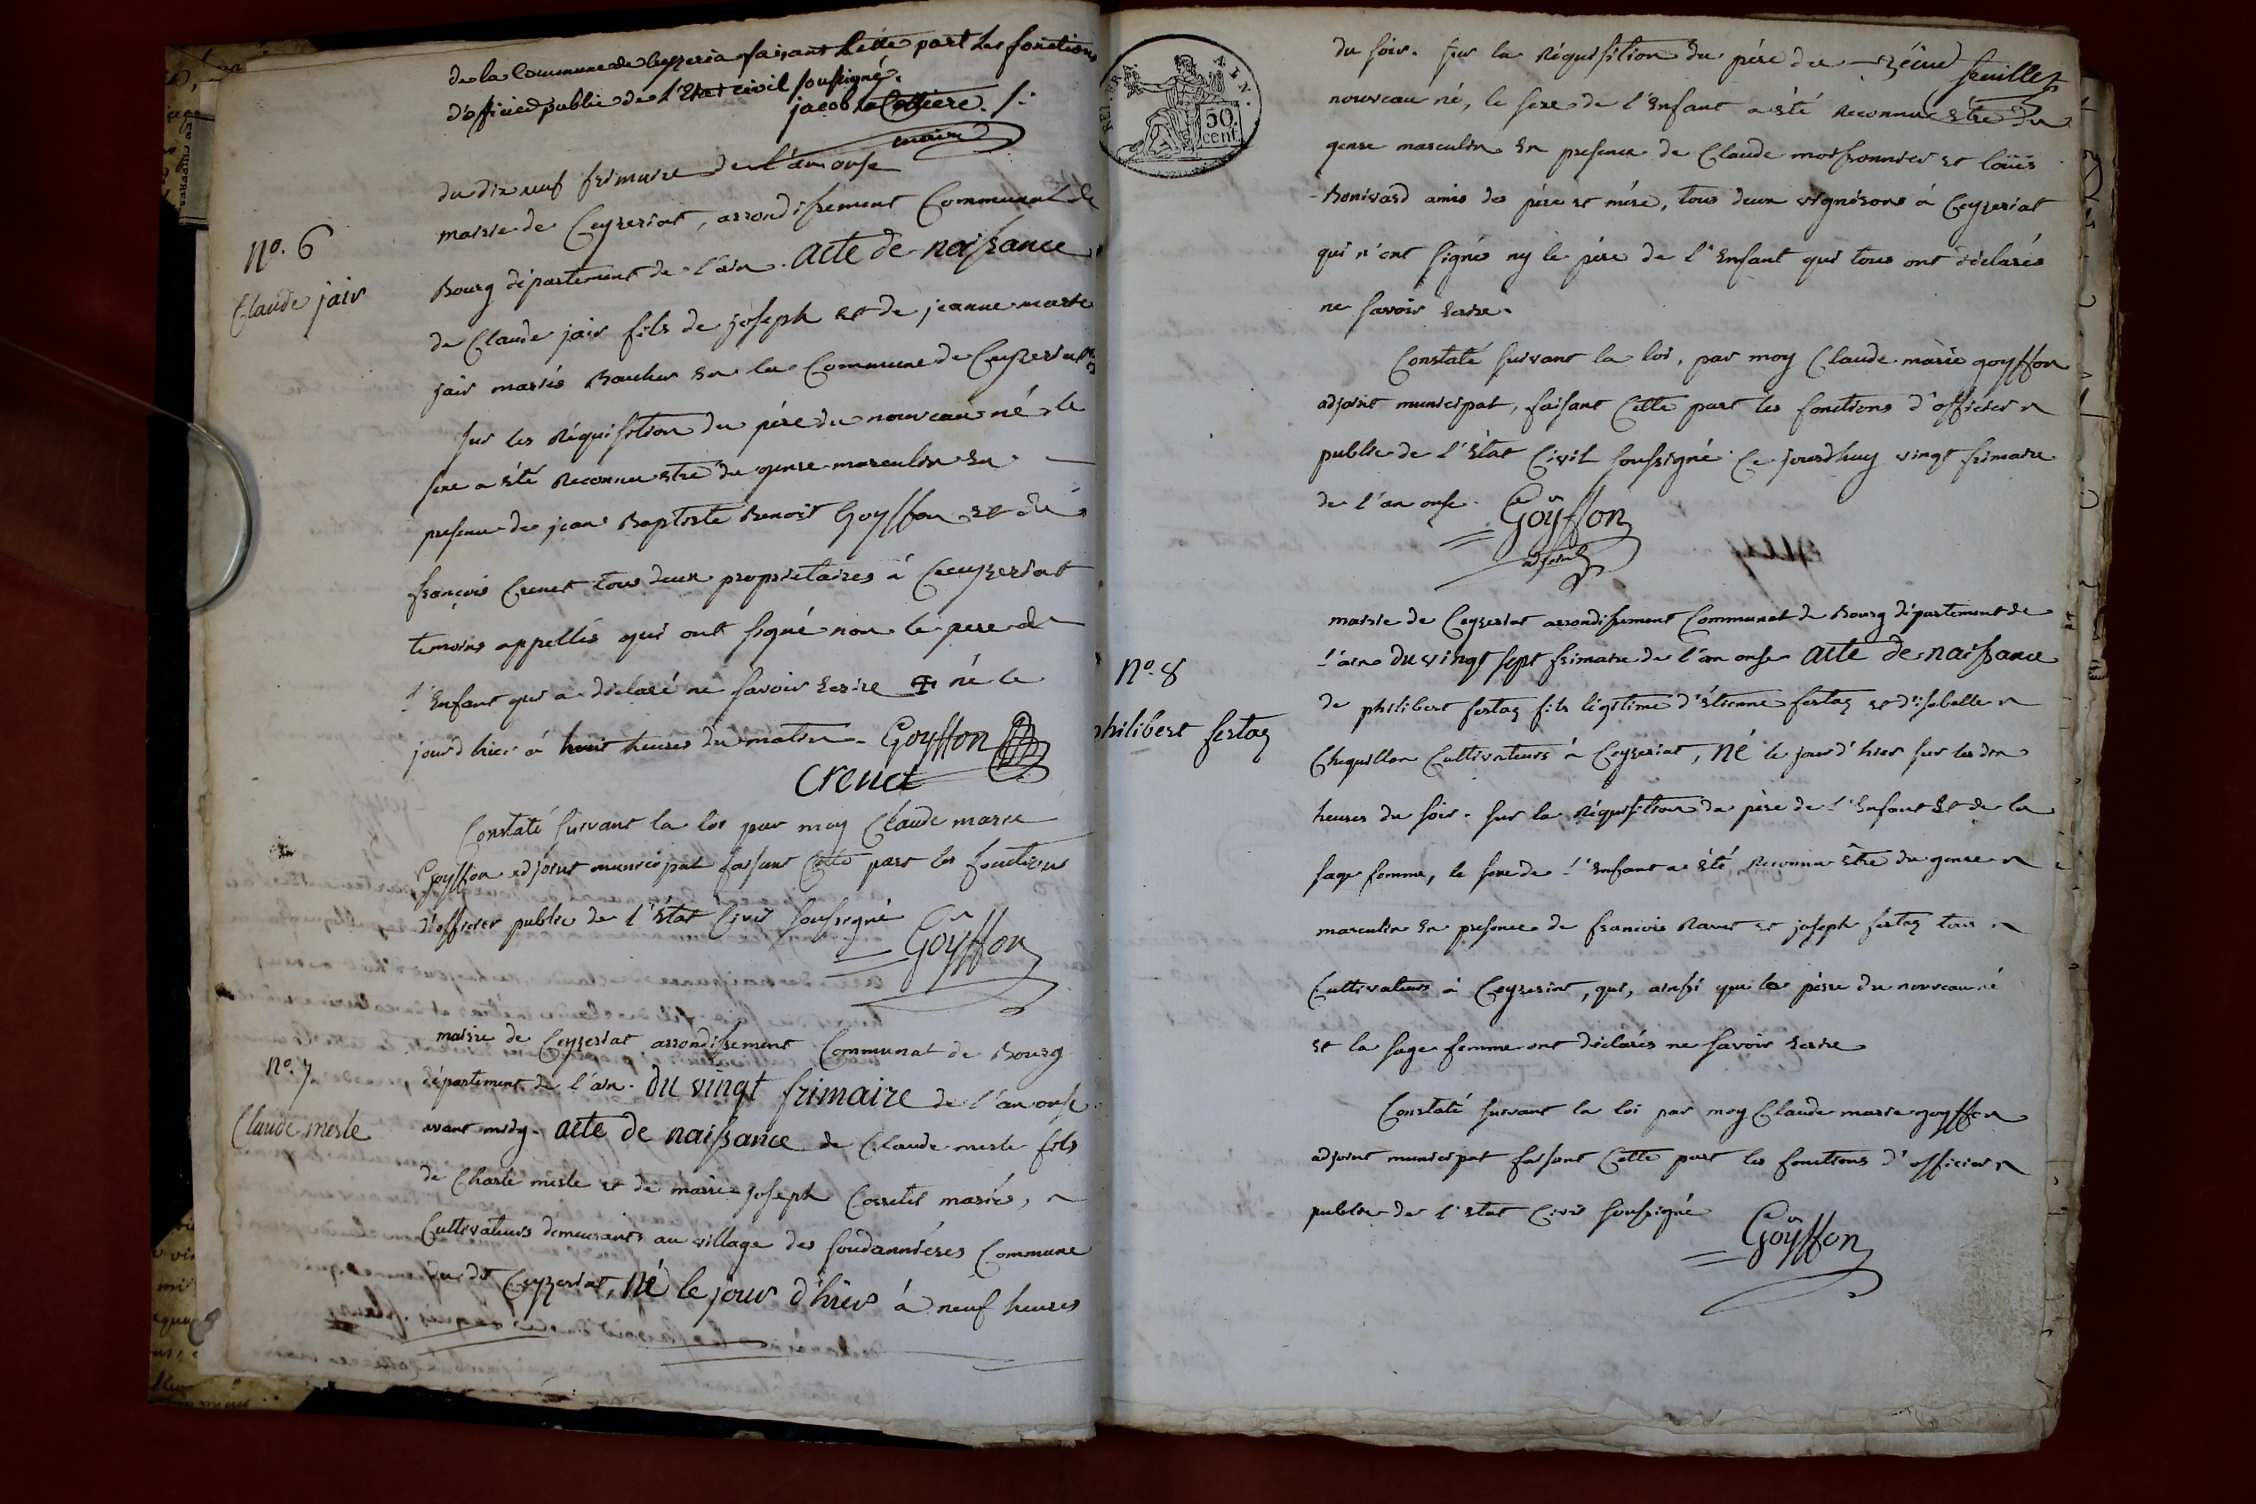 de la Commune de Ceyzeria faisant Cette part les fonctions
d'officier public de l'Etat civil soussigné.
jacob la Cottiere. S:
maire
du dix neuf frimaire de l'an onse
No. 6
Claude jair
mairie de Ceyzeriat, arrondissement Communal de
Bourg département de l'ain. acte de naissance
de Claude jair fils de joseph et de jeanne marie
jair mariés Boucher en la Commune de Ceyzeriat
sur les Réquisition du père du nouveau né le
sexe a été Reconnu etre du genre masculin en
presence de jean Baptiste Benoit Goyffon et de
françois Crenet tous deux proprietaires à Ceyzeriat
temoins appellés qui ont signé non le pere de
l'Enfant qui a déclaré ne savoir Ecrire né le
jour d'hier à huit heures du matin. Goyffon
Crenet
Constaté suivant la loi par moy Claude marie
Goyffon adjoint municipal faisant Cette part les fonctions
d'officier public de l'Etat Civil soussigné
Goyffon
No. 7
Claude mesle
mairie de Ceyzeriat arrondissement Communal de Bourg
département de l'ain. du vingt frimaire de l'an onse
avant midy. acte de naissance de Claude mesle fils
de Charle mesle et de marie joseph mariés,
Cultivateurs demeurants au village des soudannières Commune
du dit Ceyzeriat, né le jour d'hier à neuf heures
REP. FRA.
50.
cent.
feuillet
du soir. sur la Réquisition du père du
nouveau né, le sexe de l'Enfant a été Reconnu être du
genre masculin En presence de Claude moissonnier et loüis
Bonivard amis des père et mère, tous deux vignerons à Ceyzeriat
qui n'ont signés ny le père de l'Enfant qui tous ont déclarés
ne savoir Ecrire.
Constaté suivant la loi, par moy Claude marie goyffon
adjoint municipal, faisant Cette part les fonctions d'officier
public de l'Etat Civil soussigné Ce jourdhuy vingt frimaire
de l'an onse.
Goyffon
adjoint
No. 8
philibert fertaz
mairie de Ceyzeriat arrondissement Communal de Bourg département de
l'ain du vingt sept frimaire de l'an onse acte de naissance
de philibert fertaz fils légitime d'étienne fertaz et d'isabelle
Chequillon Cultivateurs à Ceyzeriat, né le jour d'hier sur les dix
heures du soir. sur la Réquisition du père de l'Enfant et de la
sage femme, le sexe de l'Enfant a été Reconnu être du genre
masculin en presence de françois Ravet et joseph fertaz tous
Cultivateurs à Ceyzeriat, qui, ainsi que le père du nouveau né
et la sage femme ont déclarés ne savoir Ecrire
Constaté suivant la loi par moy Claude marie goyffon
adjoint municipal faisant Cette part les fonctions d'officier
public de l'etat Civil soussigné
Goyffon